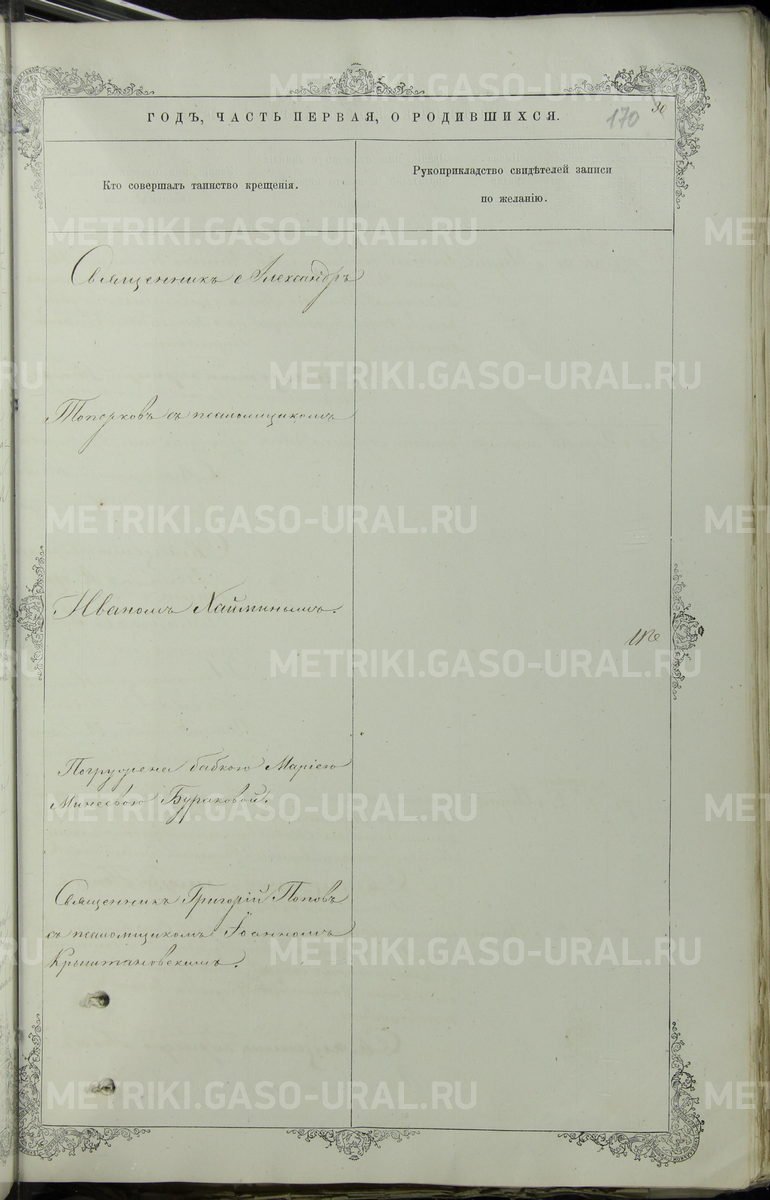 ГОДЪ, ЧАСТЬ ПЕРВАЯ, О РОДИВШИХСЯ.
170
Кто совершалъ таинство крещенія.
Рукоприкладство свидѣтелей записи
по желанію.
Священникъ Александръ
Топорковъ съ псаломщикомъ
Иваномъ Хайминымъ.
Погружена бабкою Маріею
Минеевою Бураковой.
Священникъ Григорій Поповъ
съ псаломщикомъ Іоанномъ
Крыштановскимъ.
METRIKI.GASO-URAL.RU